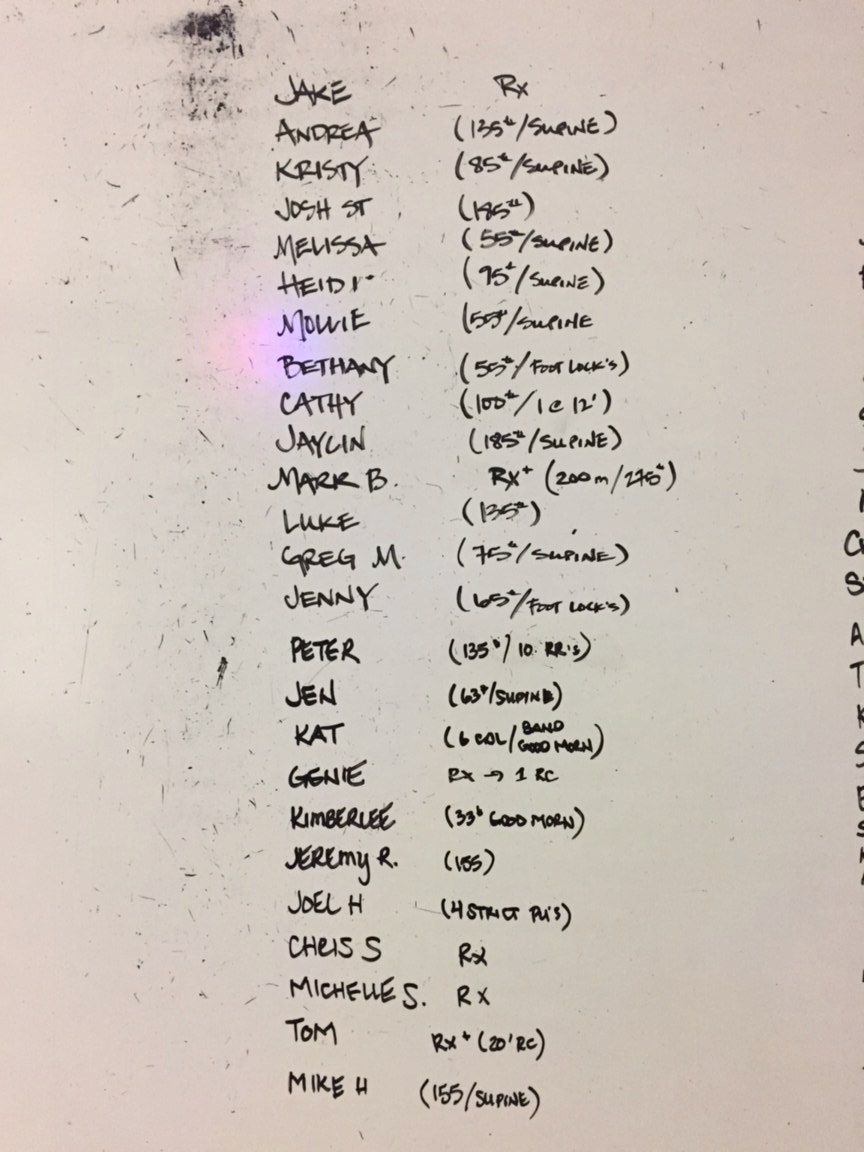 JAKE Rx
ANDREA (135#/SUPINE)
KRISTY (85#/SUPINE)
JOSH ST (185#)
MELISSA (55#/SUPINE)
HEIDI (95#/SUPINE)
MOLLIE (55#/SUPINE
BETHANY (55#/FOOT LOCK'S)
CATHY (100#/1 @ 12')
JAYLIN (185#/SUPINE)
MARK B. Rx+ (200m/275#)
LUKE (135#)
GREG M. (75#/SUPINE)
JENNY (65#/FOOT LOCK'S)
PETER (135#/10 RR'S)
JEN (63#/SUPINE)
KAT (6 COL/BAND GOOD MORN)
GENIE Rx → 1 RC
KIMBERLEE (33# GOOD MORN)
JEREMY R. (155)
JOEL H (4 STRICT PU'S)
CHRIS S Rx
MICHELLE S. RX
TOM Rx+ (20' RC)
MIKE H (155/SUPINE)